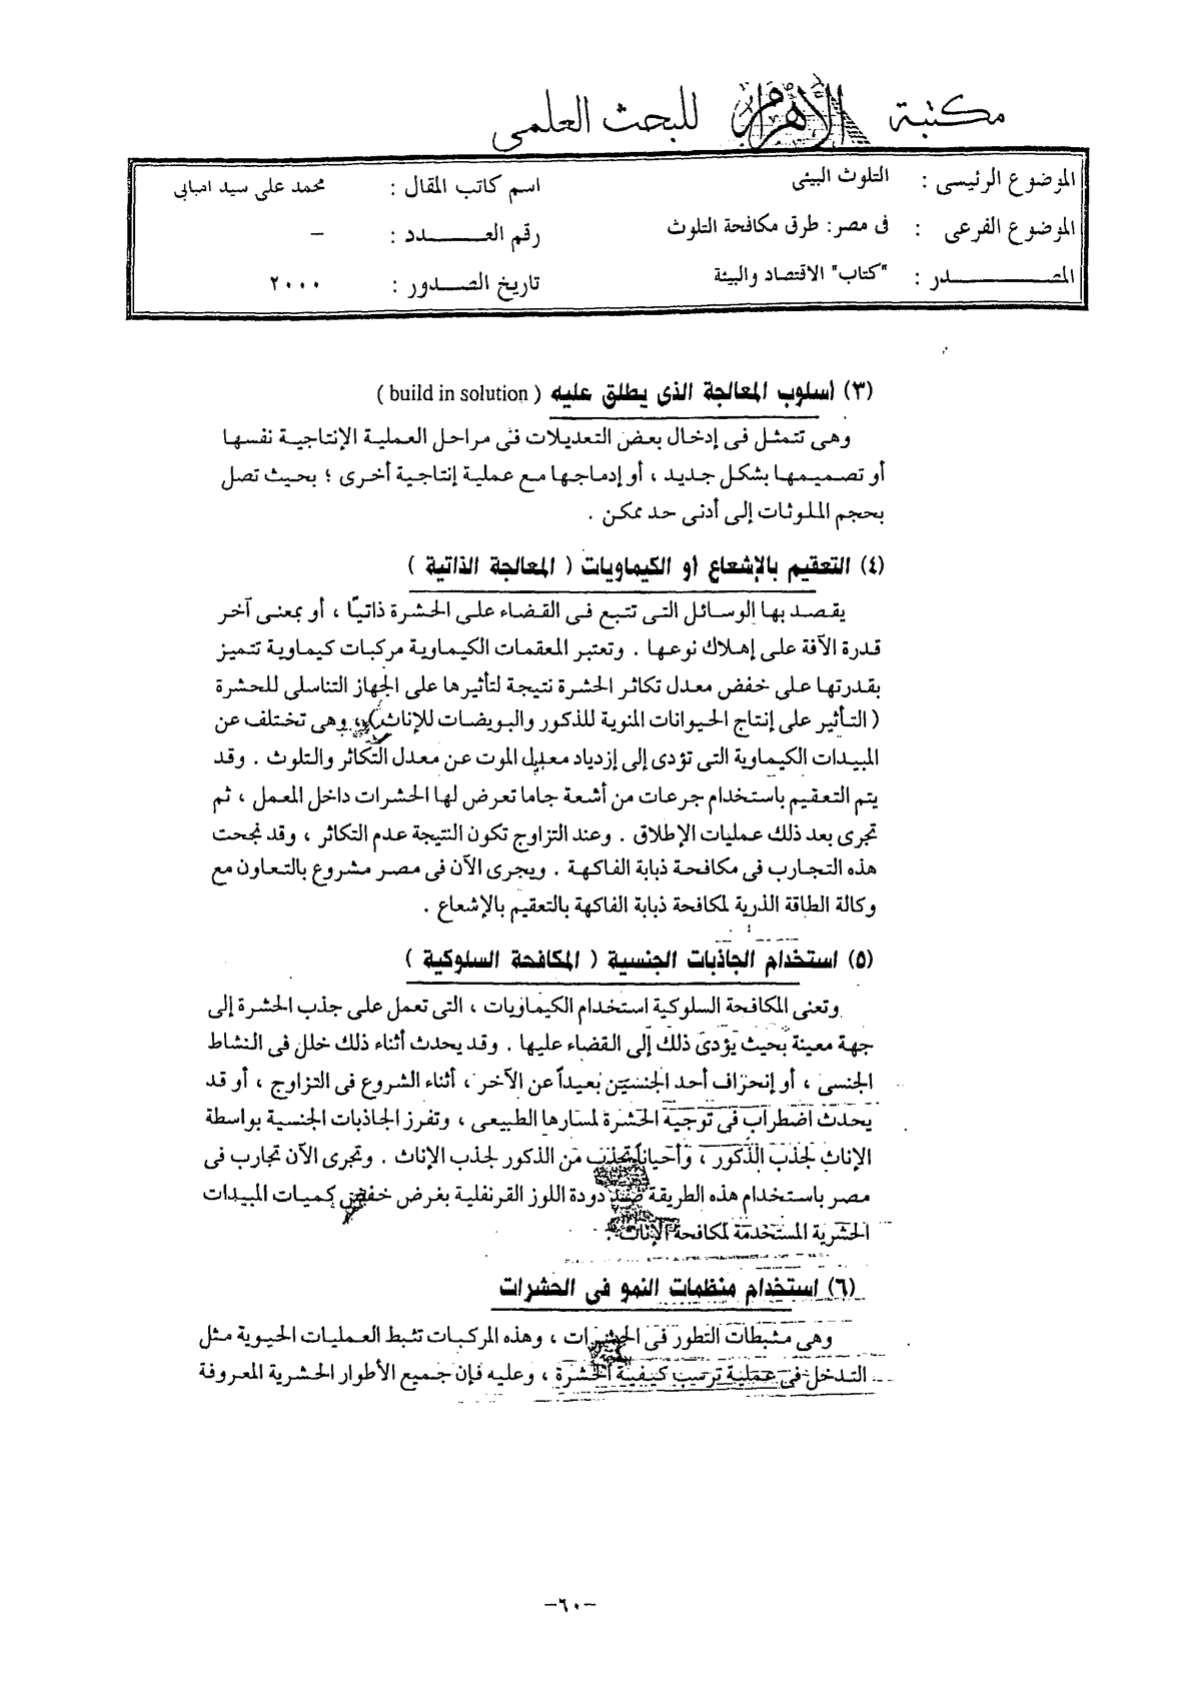 مكتبة الأهرام للبحث العلمى
الموضوع الرئيسى : التلوث البيئى
اسم كاتب المقال : محمد على سيد امبابى
الموضوع الفرعى : فى مصر: طرق مكافحة التلوث
رقم العـــــدد : –
المصـــــــــدر : "كتاب" الاقتصاد والبيئة
تاريخ الصـدور : ٢٠٠٠
(٣) أسلوب المعالجة الذى يطلق عليه ( build in solution )
وهى تتمثل فى إدخال بعض التعديلات فى مراحل العملية الإنتاجية نفسها
أو تصميمها بشكل جديد ، أو إدماجها مع عملية إنتاجية أخرى ؛ بحيث تصل
بحجم الملوثات إلى أدنى حد ممكن .
(٤) التعقيم بالإشعاع أو الكيماويات ( المعالجة الذاتية )
يقصد بها الوسائل التى تتبع فى القضاء على الحشرة ذاتيًا ، أو بمعنى آخر
قدرة الآفة على إهلاك نوعها . وتعتبر المعقمات الكيماوية مركبات كيماوية تتميز
بقدرتها على خفض معدل تكاثر الحشرة نتيجة لتأثيرها على الجهاز التناسلى للحشرة
( التأثير على إنتاج الحيوانات المنوية للذكور والبويضات للإناث ) ، وهى تختلف عن
المبيدات الكيماوية التى تؤدى إلى إزدياد معدل الموت عن معدل التكاثر والتلوث . وقد
يتم التعقيم باستخدام جرعات من أشعة جاما تعرض لها الحشرات داخل المعمل ، ثم
تجرى بعد ذلك عمليات الإطلاق . وعند التزاوج تكون النتيجة عدم التكاثر ، وقد نجحت
هذه التجارب فى مكافحة ذبابة الفاكهة . ويجرى الآن فى مصر مشروع بالتعاون مع
وكالة الطاقة الذرية لمكافحة ذبابة الفاكهة بالتعقيم بالإشعاع .
(٥) استخدام الجاذبات الجنسية ( المكافحة السلوكية )
وتعنى المكافحة السلوكية استخدام الكيماويات ، التى تعمل على جذب الحشرة إلى
جهة معينة بحيث يؤدى ذلك إلى القضاء عليها . وقد يحدث أثناء ذلك خلل فى النشاط
الجنسى ، أو إنحراف أحد الجنسين بعيداً عن الآخر ، أثناء الشروع فى التزاوج ، أو قد
يحدث اضطراب فى توجيه الحشرة لمسارها الطبيعى ، وتفرز الجاذبات الجنسية بواسطة
الإناث لجذب الذكور ، وأحياناً تجذب من الذكور لجذب الإناث . وتجرى الآن تجارب فى
مصر باستخدام هذه الطريقة ضد دودة اللوز القرنفلية بغرض خفض كميات المبيدات
الحشرية المستخدمة لمكافحة الإناث .
(٦) استخدام منظمات النمو فى الحشرات
وهى مثبطات التطور فى الحشرات ، وهذه المركبات تثبط العمليات الحيوية مثل
التدخل فى عملية ترسيب كيفية الحشرة ، وعليه فإن جميع الأطوار الحشرية المعروفة
–٦٠–